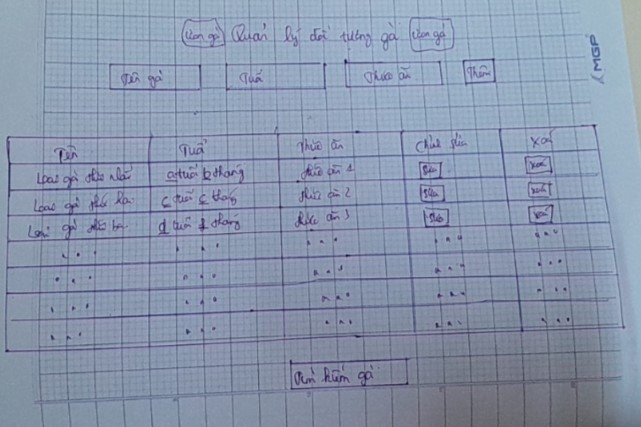 con gà Quản lý đối tượng gà con gà
MGP
Tên gà Tuổi Thức ăn Thêm
Tên Tuổi Thức ăn Chỉnh sửa Xoá
Loại gà thứ nhất a tuổi b tháng thức ăn 1 sửa xoá
Loại gà thứ hai c tuổi c tháng thức ăn 2 sửa xoá
Loại gà thứ ba d tuổi d tháng thức ăn 3 sửa xoá
... ... ... ... ...
... ... ... ... ...
... ... ... ... ...
... ... ... ... ...
Tìm kiếm gà